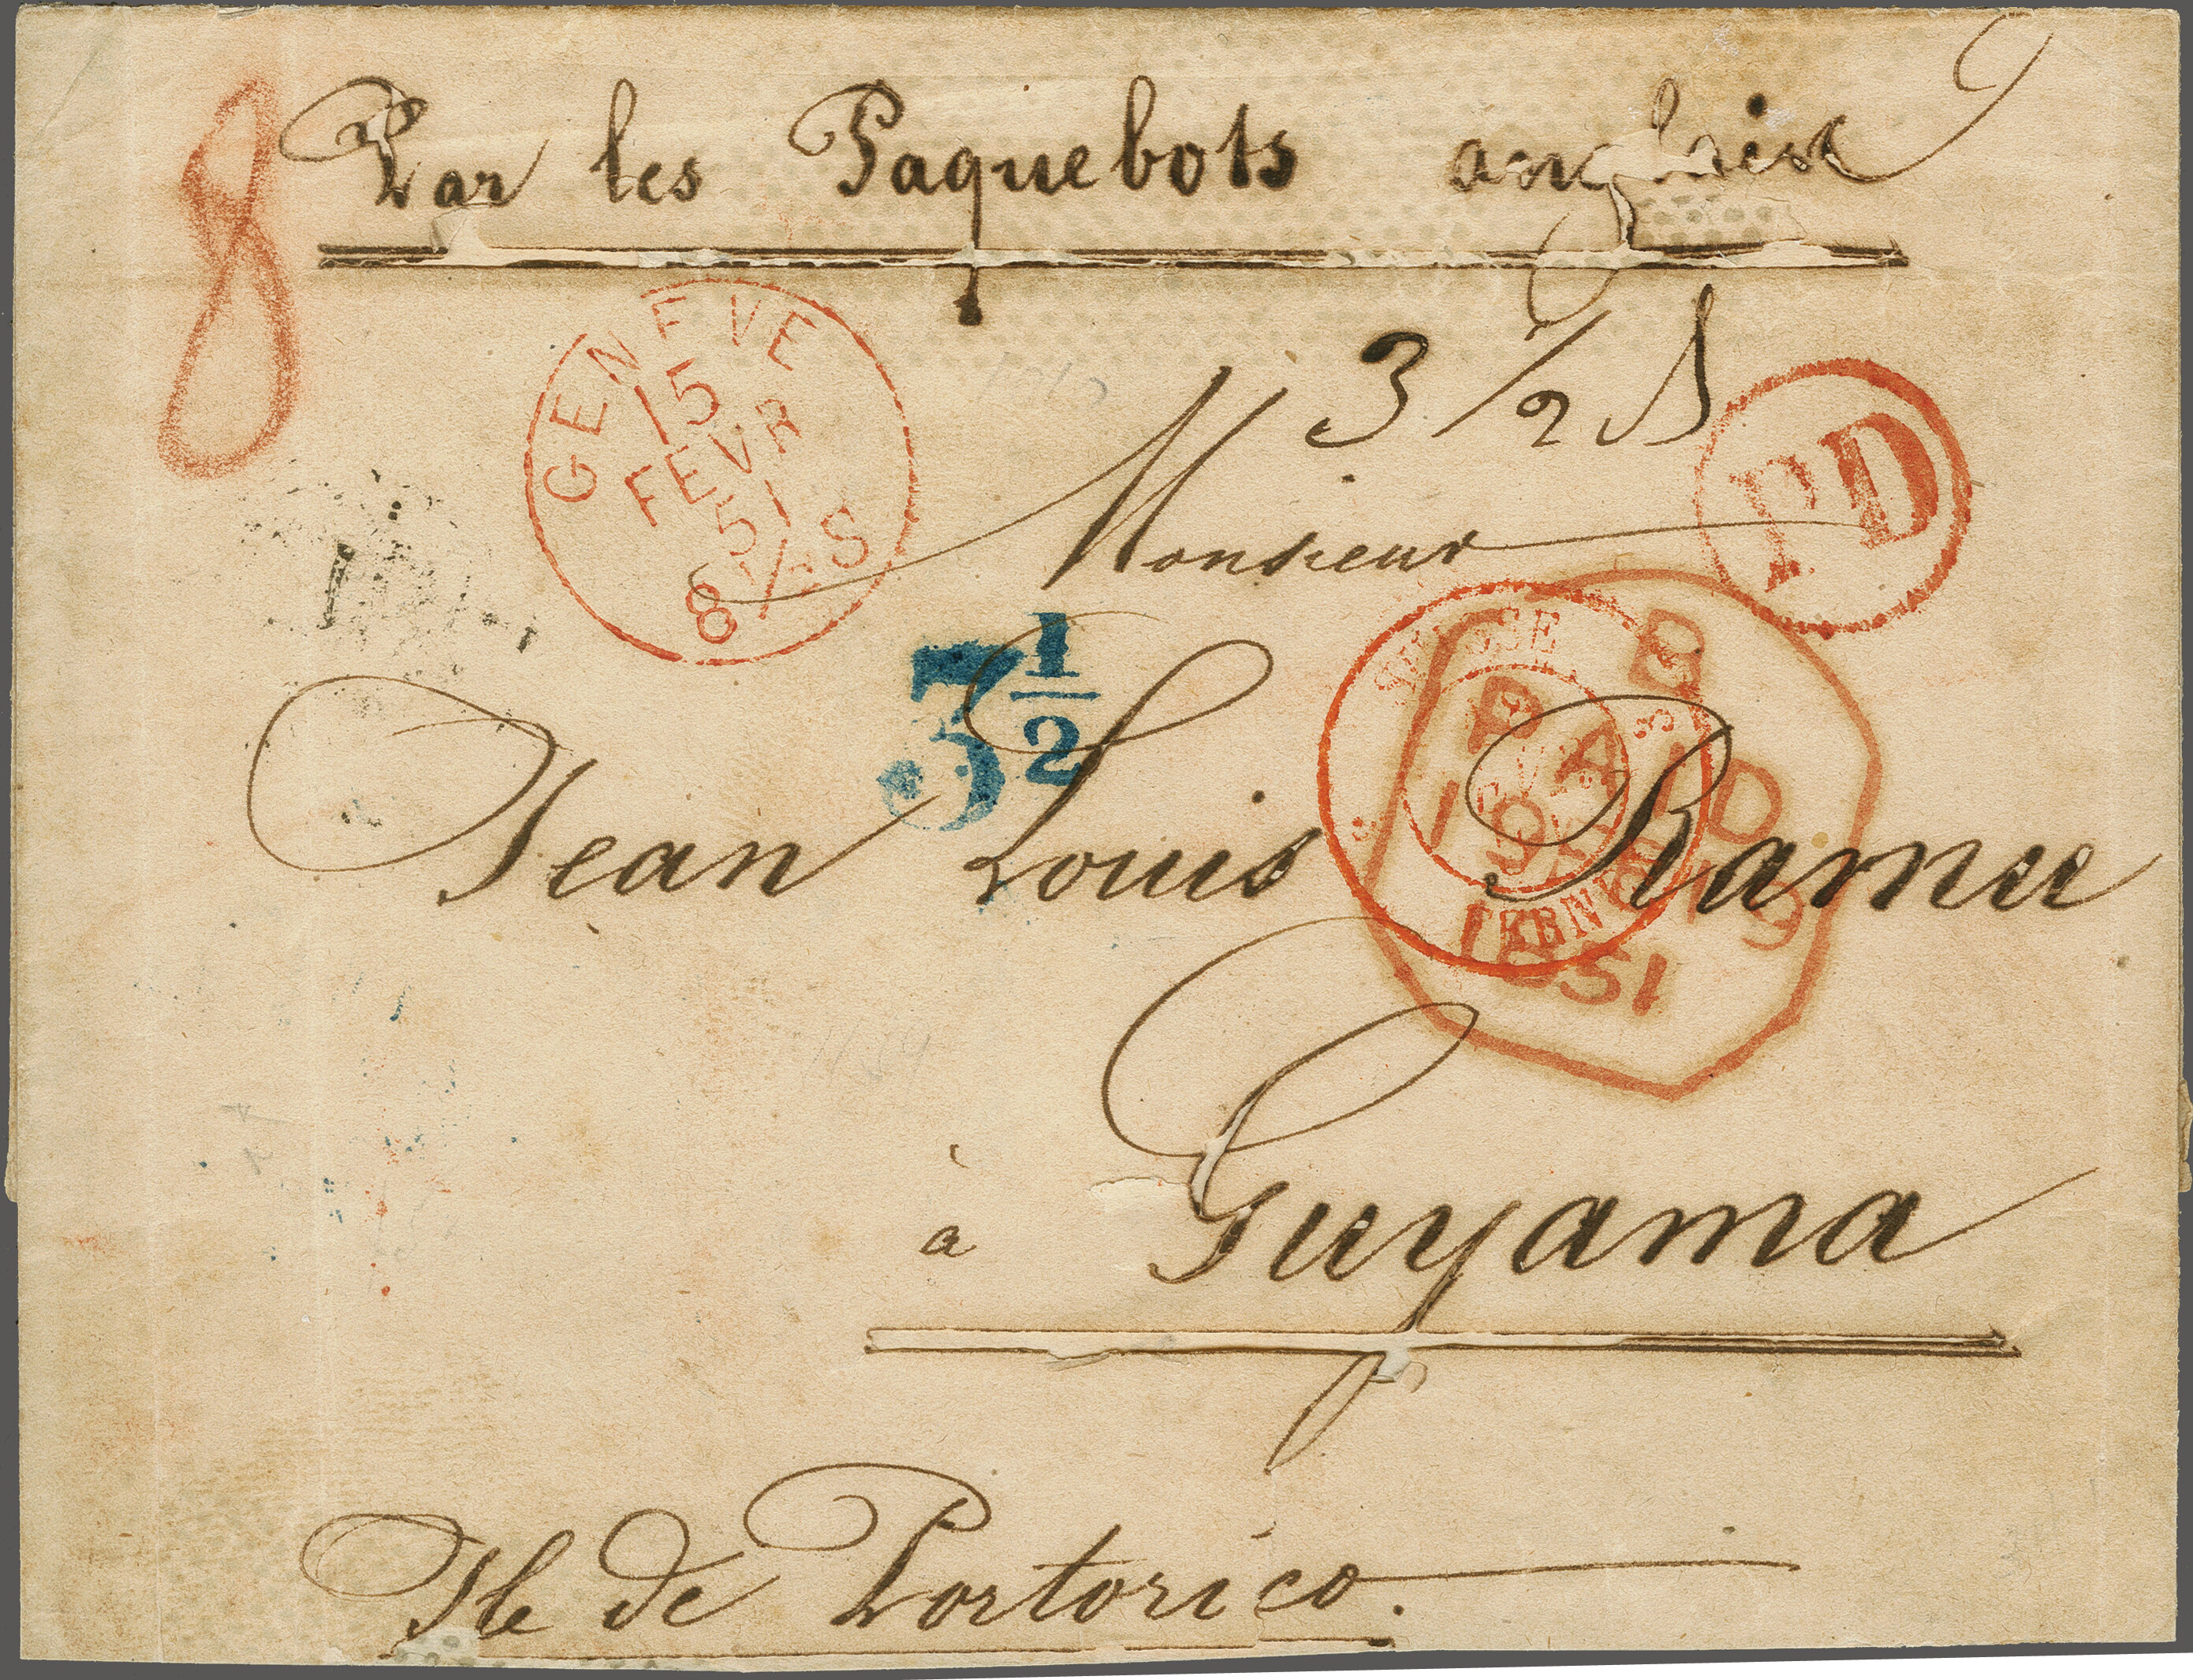 8
Par les Paquebots anglais
GENEVE
15
FEVR
51
8 1/2 S
3 1/2 S
PD
Monsieur
3 1/2
SUISSE
FERNEX
B
PAID
19
1851
Jean Louis Ramu
à Guyama
Ile de Portorico.